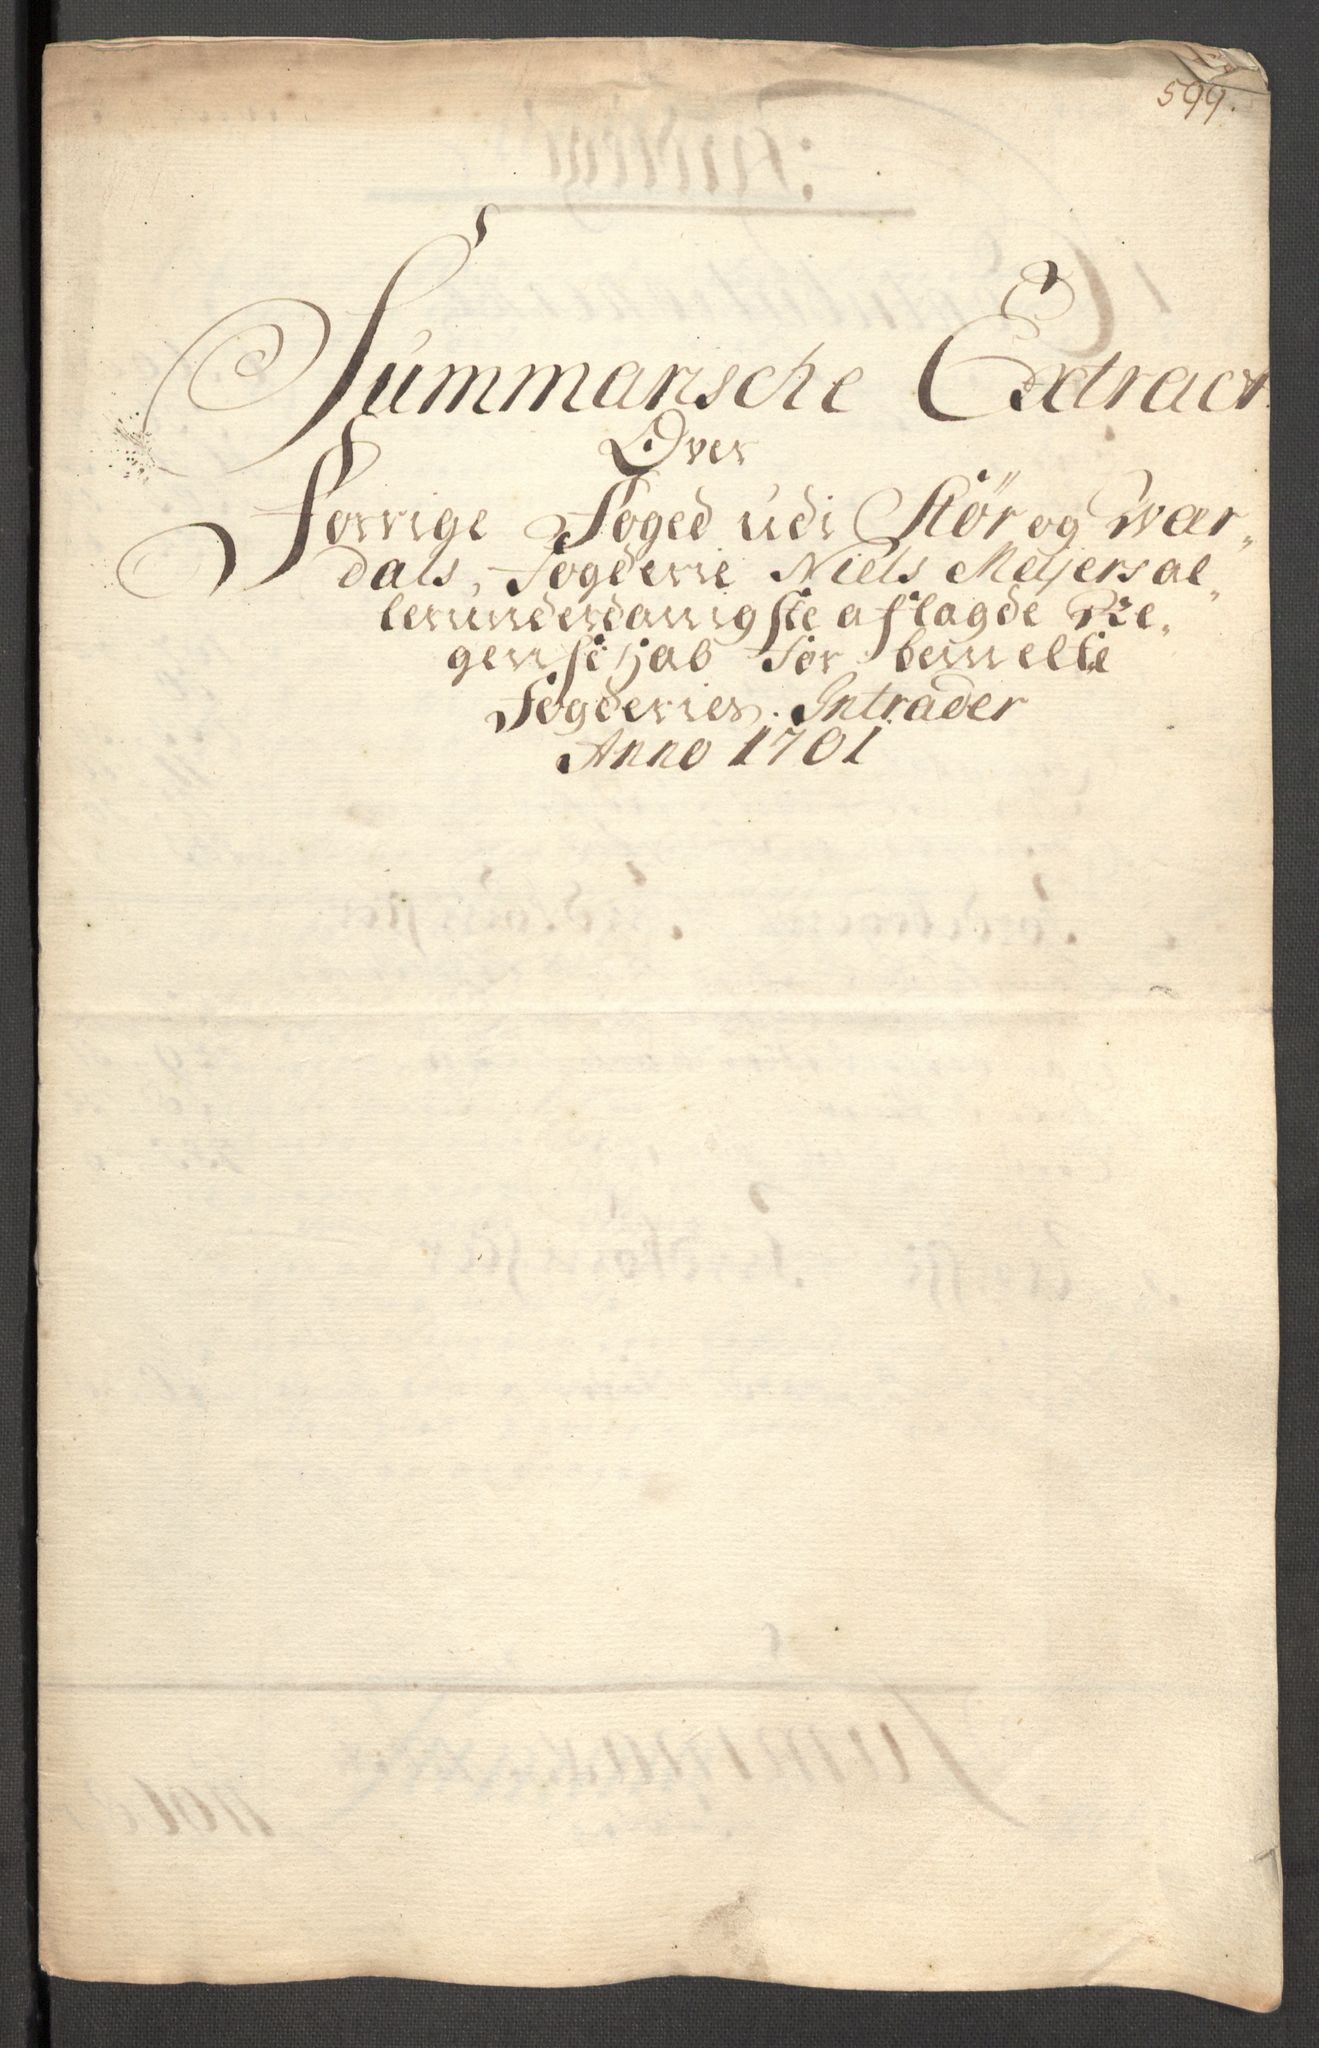 599.
Summarische Extract
Over
Forrige Foged udi Stør og Wær„
dals, Fogderie Niels Meyers al„
lerunderdanigste aflagde Re„
genskab for bemelte
Fogderies Intrader
Anno 1701